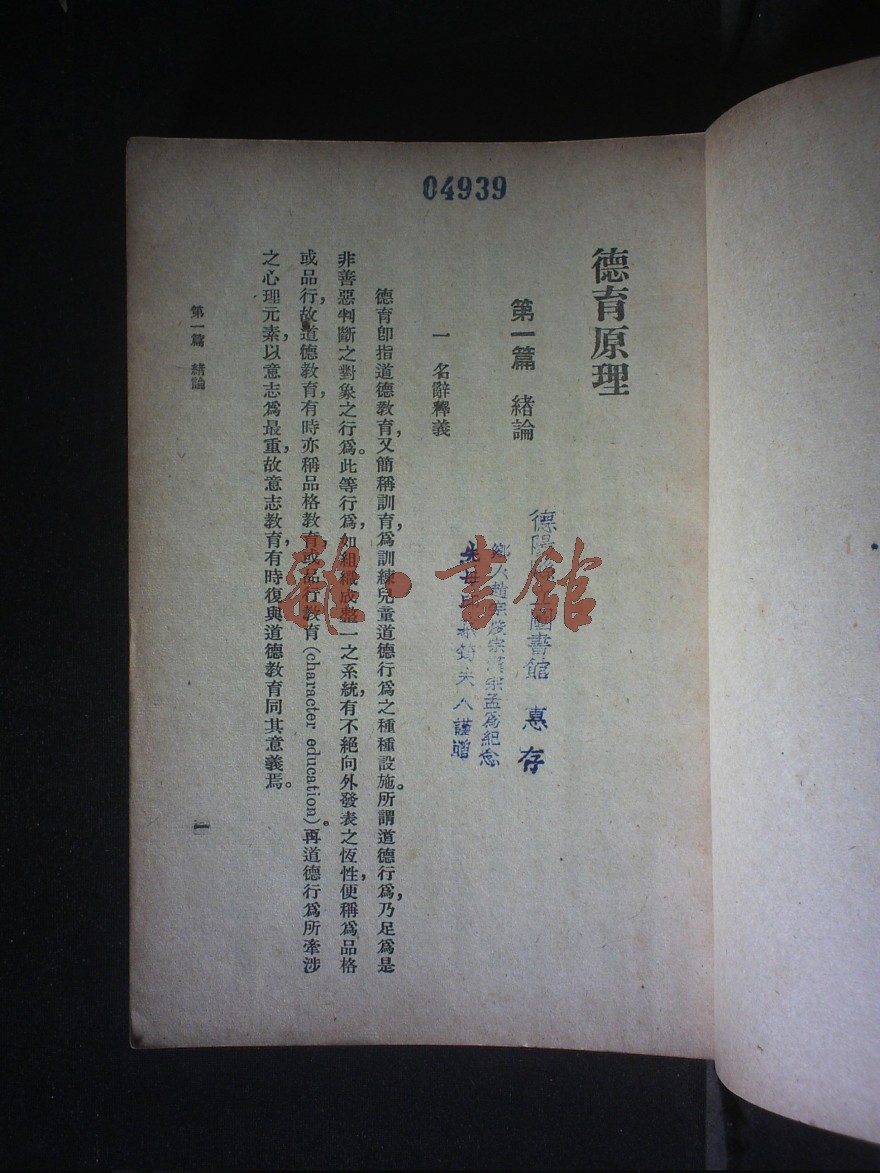 04939
德育原理
第一篇 緒論
德陽圖書館 惠存
鄉人趙宗發宗漢宗孟爲紀念
夫人謹贈
一 名辭釋義
德育卽指道德教育，又簡稱訓育，爲訓練兒童道德行爲之種種設施。所謂道德行爲，乃足爲是
非善惡判斷之對象之行爲。此等行爲，如組織成整一之系統，有不絕向外發表之恆性，便稱爲品格
或品行，故道德教育，有時亦稱品格教育，或品行教育(character education)。再道德行爲所牽涉
之心理元素，以意志爲最重，故意志教育，有時復與道德教育同其意義焉。
第一篇 緒論
一
雜·書館